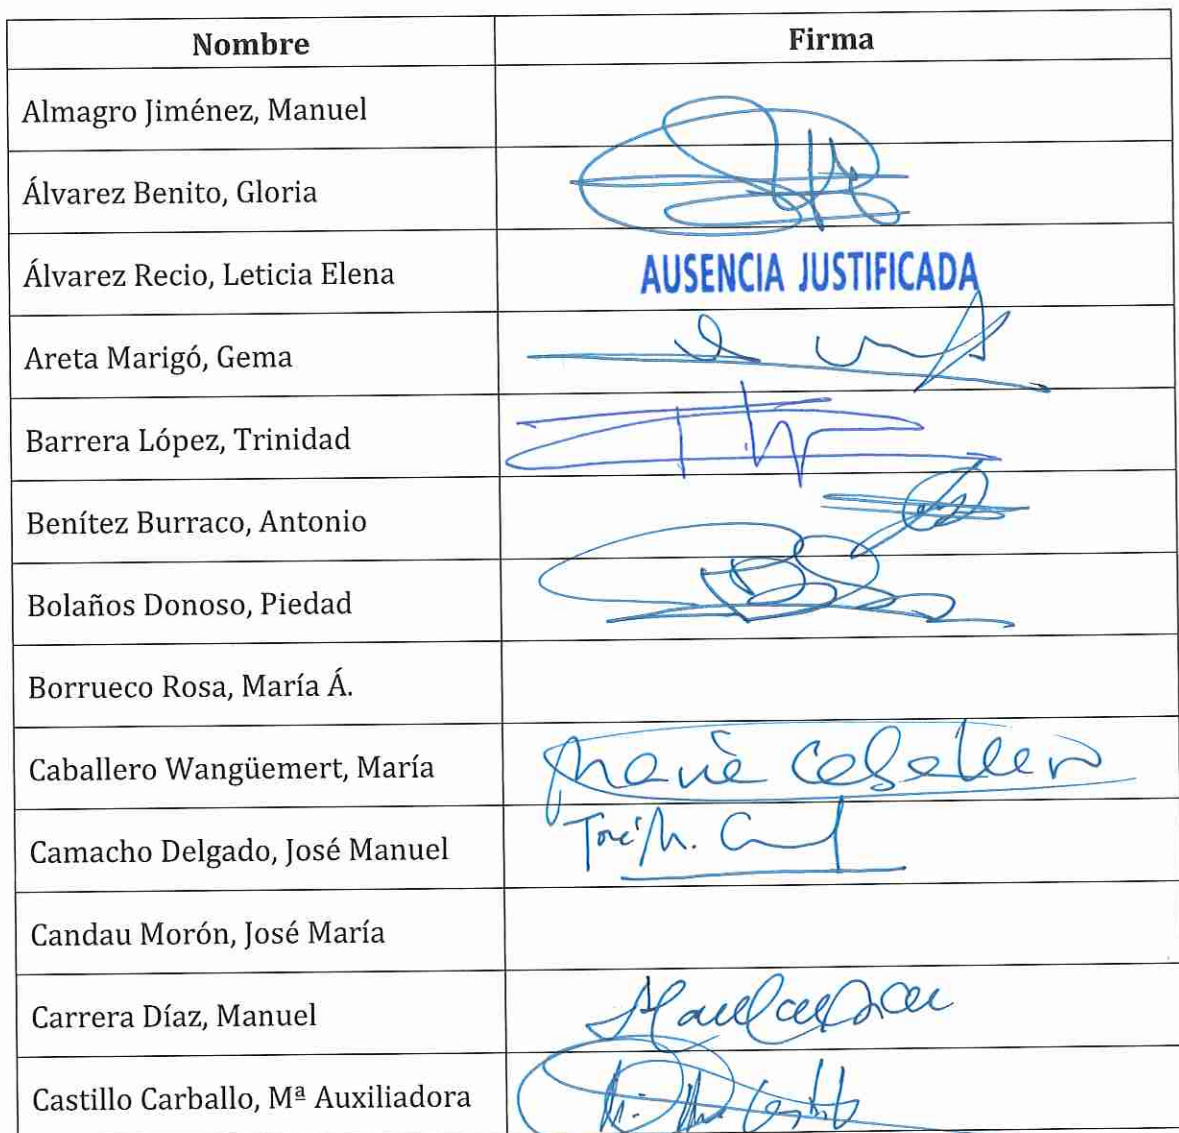 Nombre Firma
Almagro Jiménez, Manuel
Álvarez Benito, Gloria
Álvarez Recio, Leticia Elena AUSENCIA JUSTIFICADA
Areta Marigó, Gema
Barrera López, Trinidad
Benítez Burraco, Antonio
Bolaños Donoso, Piedad
Borrueco Rosa, María Á.
Caballero Wangüemert, María María Caballero
Camacho Delgado, José Manuel José M.
Candau Morón, José María
Carrera Díaz, Manuel
Castillo Carballo, Mª Auxiliadora